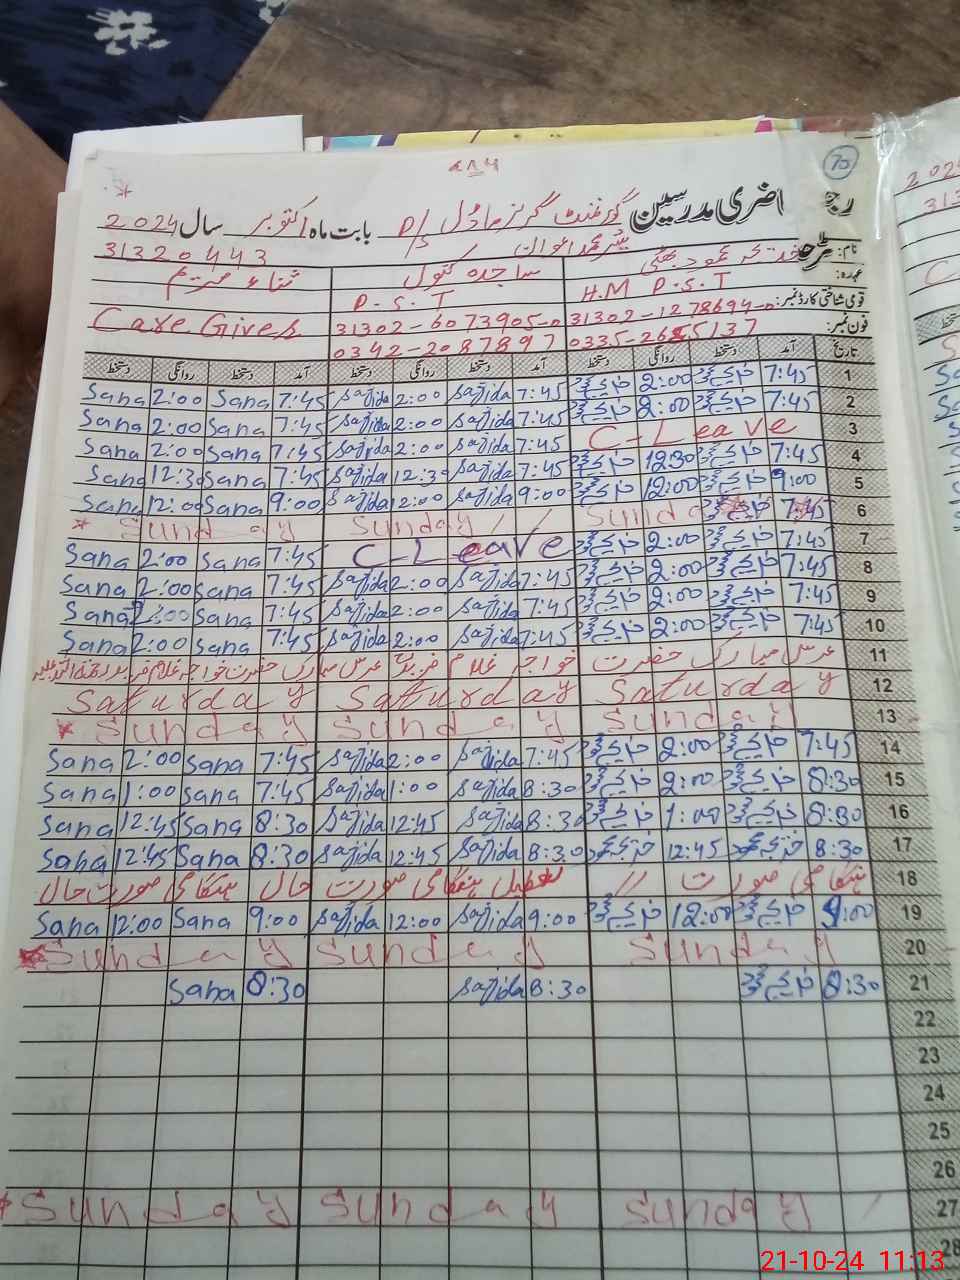 70
رجسٹر حاضری مدرسین گورنمنٹ گرلز ماڈل P/S بابت ماہ اکتوبر سال 2024
31320443
نام: ساجدہ کنول ثناء مریم
عہدہ: H.M P.S.T P.S.T
قومی شناختی کارڈ نمبر: 31302-6073905-0 Care Givers
فون نمبر: 0342-2087897
تاریخ آمد دستخط روانگی دستخط آمد دستخط روانگی دستخط آمد دستخط روانگی دستخط
1 7:45 2:00 7:45 Sajida 2:00 Sajida 7:45 Sana 2:00 Sana
2 7:45 2:00 7:45 Sajida 2:00 Sajida 7:45 Sana 2:00 Sana
3 C-Leave 7:45 Sajida 2:00 Sajida 7:45 Sana 2:00 Sana
4 7:45 12:30 7:45 Sajida 12:30 Sajida 7:45 Sana 12:30 Sana
5 9:00 12:00 9:00 Sajida 12:00 Sajida 9:00 Sana 12:00 Sana
6 Sunday Sunday
7 7:45 2:00 C-Leave 7:45 Sana 2:00 Sana
8 7:45 2:00 7:45 Sajida 2:00 Sajida 7:45 Sana 2:00 Sana
9 7:45 2:00 7:45 Sajida 2:00 Sajida 7:45 Sana 2:00 Sana
10 7:45 2:00 7:45 Sajida 2:00 Sajida 7:45 Sana 2:00 Sana
11 عرس مبارک حضرت خواجہ غلام فرید عرس مبارک حضرت خواجہ غلام فرید
12 Saturday Saturday Saturday
13 Sunday Sunday Sunday
14 7:45 2:00 7:45 Sajida 2:00 Sajida 7:45 Sana 2:00 Sana
15 8:30 2:00 8:30 Sajida 1:00 Sajida 7:45 Sana 1:00 Sana
16 8:30 1:00 8:30 Sajida 12:45 Sajida 8:30 Sana 12:45 Sana
17 8:30 12:45 8:30 Sajida 12:45 Sajida 8:30 Sana 12:45 Sana
18 ہنگامی صورت // تعطیل ہنگامی صورت حال ہنگامی صورت حال
19 9:00 12:00 9:00 Sajida 12:00 Sajida 9:00 Sana 12:00 Sana
20 Sunday Sunday Sunday
21 8:30 8:30 Sajida 8:30 Sana
22
23
24
25
26
27 Sunday Sunday Sunday
28
21-10-24 11:13